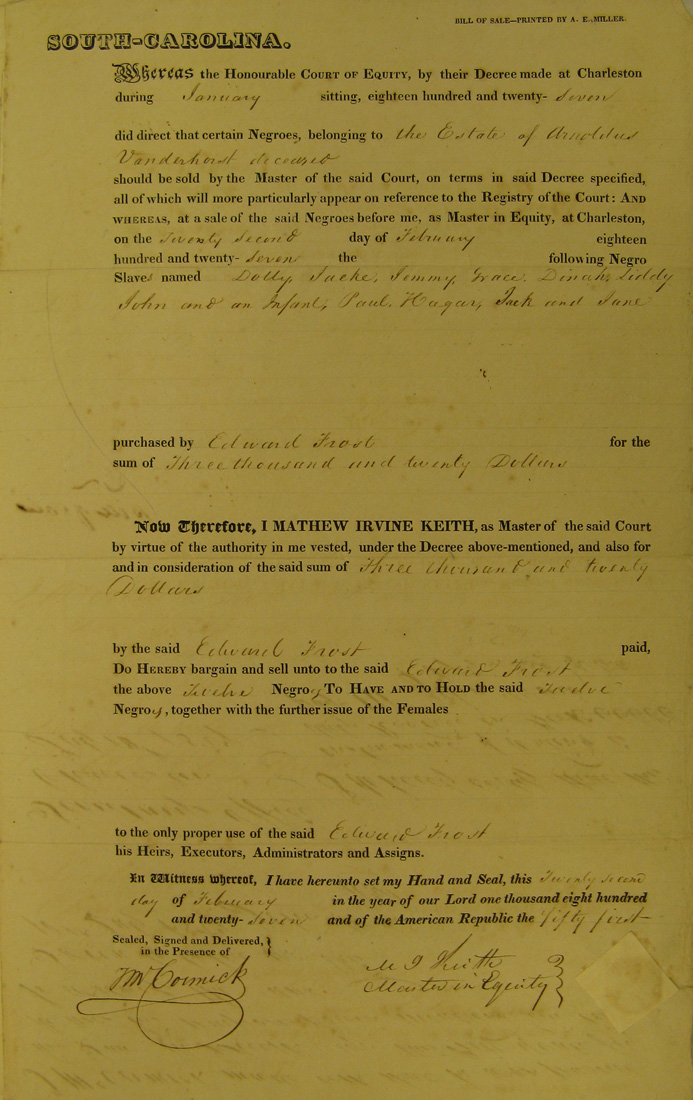 BILL OF SALE—PRINTED BY A. E. MILLER.
SOUTH-CAROLINA.
Whereas the Honourable COURT OF EQUITY, by their Decree made at Charleston
during January sitting, eighteen hundred and twenty- Seven
did direct that certain Negroes, belonging to the Estate of Arnoldus
Vanderhorst deceased
should be sold by the Master of the said Court, on terms in said Decree specified,
all of which will more particularly appear on reference to the Registry of the Court: AND
WHEREAS, at a sale of the said Negroes before me, as Master in Equity, at Charleston,
on the Twenty Second day of February eighteen
hundred and twenty- Seven the following Negro
Slaves named Dolly, Jimmy, Grace, Dinah,
John and an Infant, Paul, Hagar, Jack and Jane
purchased by Edward Frost for the
sum of Three thousand and twenty Dollars
Now Therefore, I MATHEW IRVINE KEITH, as Master of the said Court
by virtue of the authority in me vested, under the Decree above-mentioned, and also for
and in consideration of the said sum of Three thousand and twenty
Dollars
by the said Edward Frost paid,
DO HEREBY bargain and sell unto to the said Edward Frost
the above Twelve Negroes TO HAVE AND TO HOLD the said Twelve
Negroes, together with the further issue of the Females
to the only proper use of the said Edward Frost
his Heirs, Executors, Administrators and Assigns.
In Witness whereof, I have hereunto set my Hand and Seal, this Twenty second
day of February in the year of our Lord one thousand eight hundred
and twenty- Seven and of the American Republic the fifty first
Sealed, Signed and Delivered,
in the Presence of
McCormick
M I Keith
Master in Equity